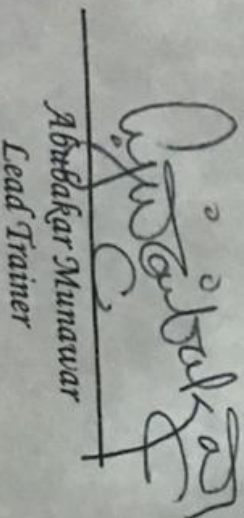 Abubakar Munawar
Lead Trainer